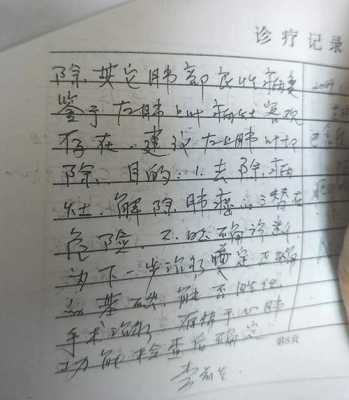 诊疗记录
除其它肺部良性病变
鉴于左肺上叶病灶客观
存在,建议左上肺叶切
除,目的:1.去除病
灶,解除肺癌的潜在
危险,2.明确诊断,
为下一步治疗奠定正确
的基础,能否做
手术治疗,有待于心肺
功能检查后确定